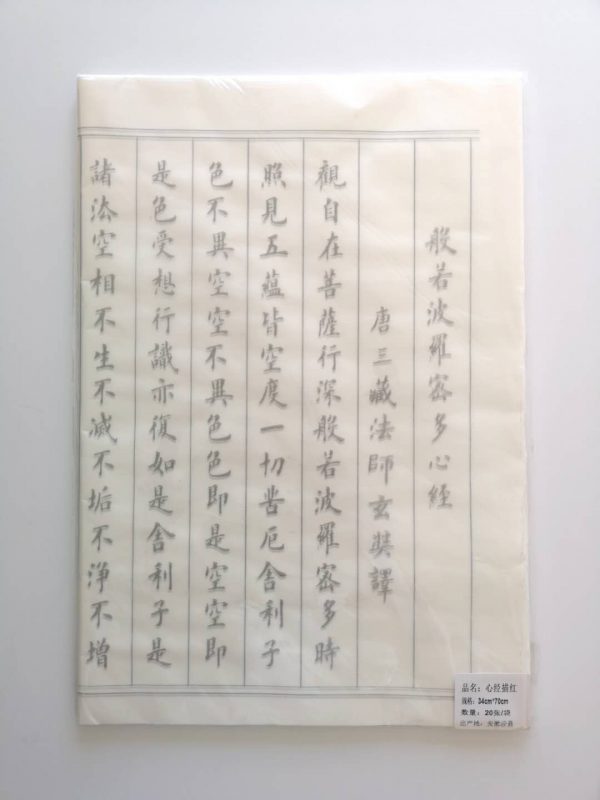 般若波羅蜜多心經
唐三藏法師玄奘譯
觀自在菩薩行深般若波羅蜜多時
照見五蘊皆空度一切苦厄舍利子
色不異空空不異色色即是空空即
是色受想行識亦復如是舍利子是
諸法空相不生不滅不垢不淨不增
品名：心经描红
规格：34cm*70cm
数量：20张/袋
出产地：安徽泾县